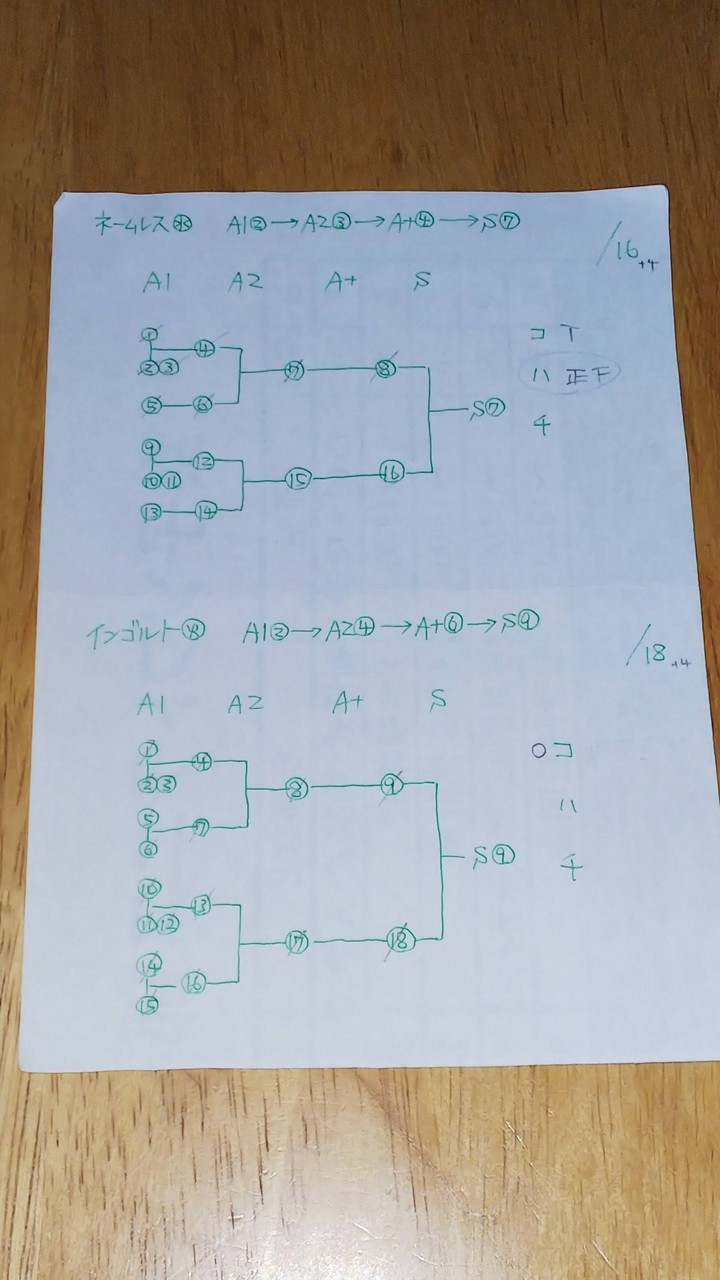 ネームレス㊌ A1②→A2③→A+④→S⑦
/16+4
A1 A2 A+ S
① ④
②③
⑦ ⑧
⑤ ⑥
S⑦
⑨ ⑫
⑩⑪
⑮ ⑯
⑬ ⑭
コ 丅
ハ 正下
チ
インゴルト A1③→A2④→A+⑥→S⑨
/18+4
A1 A2 A+ S
① ④
②③
⑧ ⑨
⑤ ⑦
⑥
S⑨
⑩ ⑬
⑪⑫
⑰ ⑱
⑭ ⑯
⑮
○コ
ハ
チ